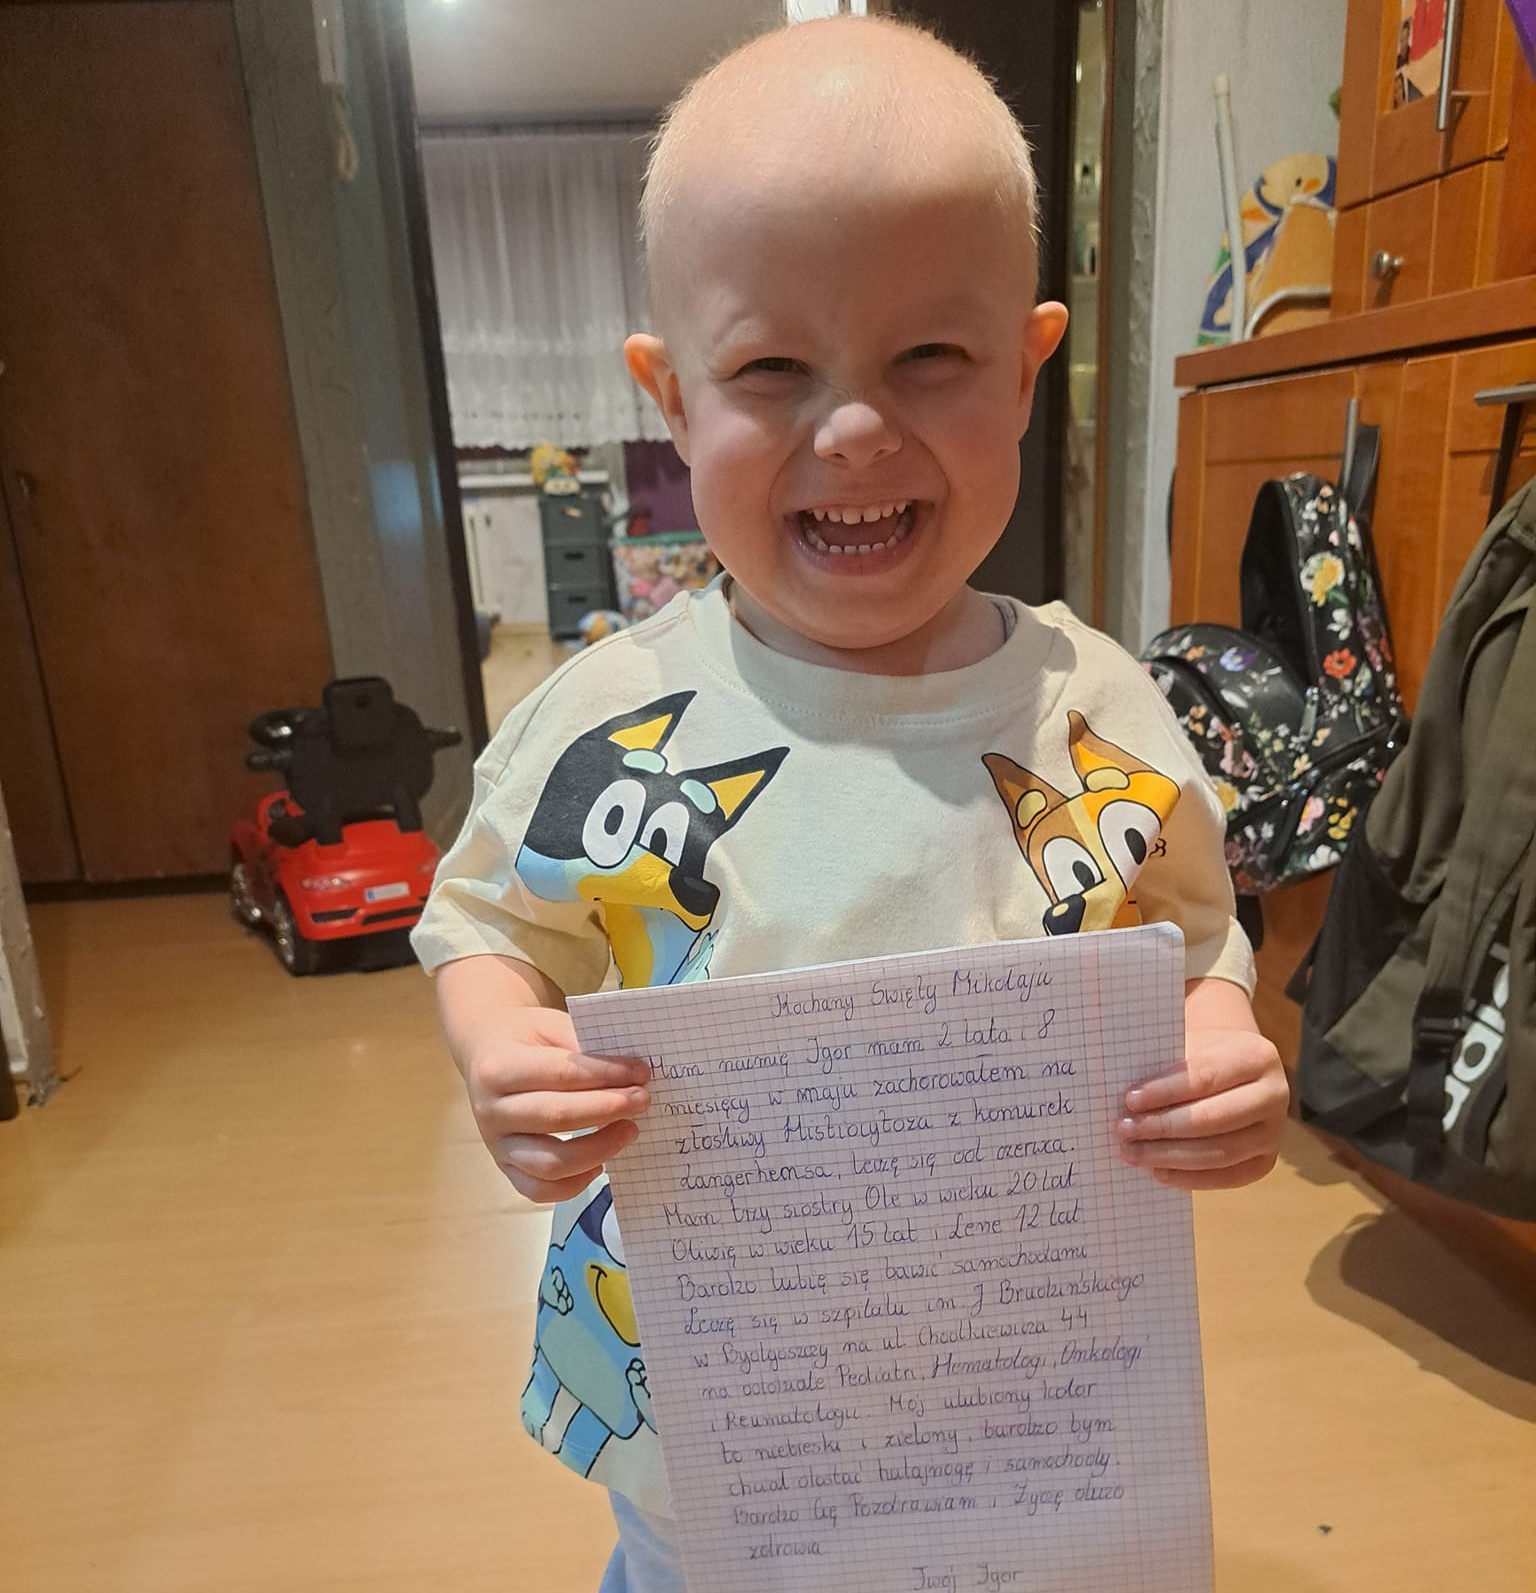 Kochany Święty Mikołaju
Mam naimię Igor mam 2 lata i 8
miesięcy w maju zachorowałem na
złośliwy Histiocytoza z komurek
Langerhensa, leczę się od czerwca.
Mam trzy siostry Ole w wieku 20 lat
Oliwię w wieku 15 lat i Lene 12 lat
Bardzo lubię się bawić samochodami
Leczę się w szpitalu im J Brudzińskiego
w Bydgoszczy na ul. Chodkiewicza 44
na oddziale Pediatri, Hematologi, Onkologi
i Reumatologii. Mój ulubiony kolor
to niebieski i zielony, bardzo bym
chciał dostać hulajnogę i samochody.
Bardzo Cię Pozdrawiam i Życzę dużo
zdrowia
Twój Igor
adidas